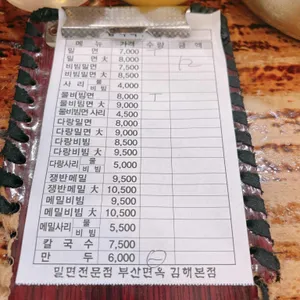 메 뉴 가격 수량 금 액
밀 면 7,000
밀 면 大 8,000
비빔밀면 7,500
비빔밀면 大 8,500
사 리 물 비빔 4,000
물비빔면 8,000
물비빔면 大 9,000
물비빔면 사리 4,500
다랑밀면 8,000
다랑밀면 大 9,000
다랑비빔 8,500
다랑비빔 大 9,500
다랑사리 물 비빔 5,000
쟁반메밀 9,500
쟁반메밀 大 10,500
메밀비빔 9,500
메밀비빔 大 10,500
메밀사리 물 비빔 5,500
칼 국 수 7,500
만 두 6,000
밀면전문점 부산면옥 김해본점